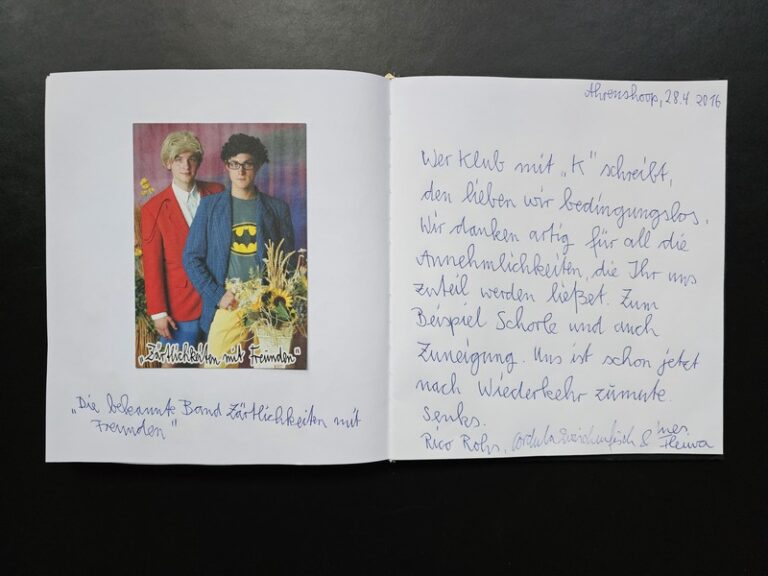 „Zärtlichkeiten mit Freunden“
„Die bekannte Band Zärtlichkeiten mit
Freunden“
Ahrenshoop, 28.4.2016
Wer Klub mit „K“ schreibt,
den lieben wir bedingungslos.
Wir danken artig für all die
Annehmlichkeiten, die Ihr uns
zuteil werden ließet. Zum
Beispiel Schorle und auch
Zuneigung. Uns ist schon jetzt
nach Wiederkehr zumute
Senks.
Rico Rohs, Cordula Zwischenfisch & Ines
Fleiwa